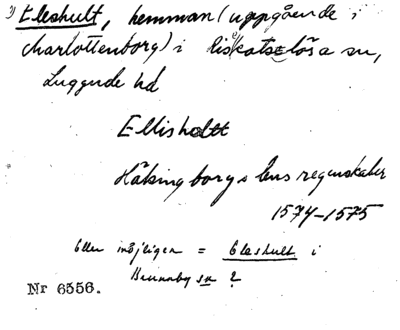 1) Eleshult, hemman (uppgående i
Charlottenborg) i Riseatslösa sn,
Luggude hd
Ellishollt
Hälsingborgs läns regenskaber
1574-1575
Eller möjligen = Eleshult i
Brunnby sn ?
Nr 6556.